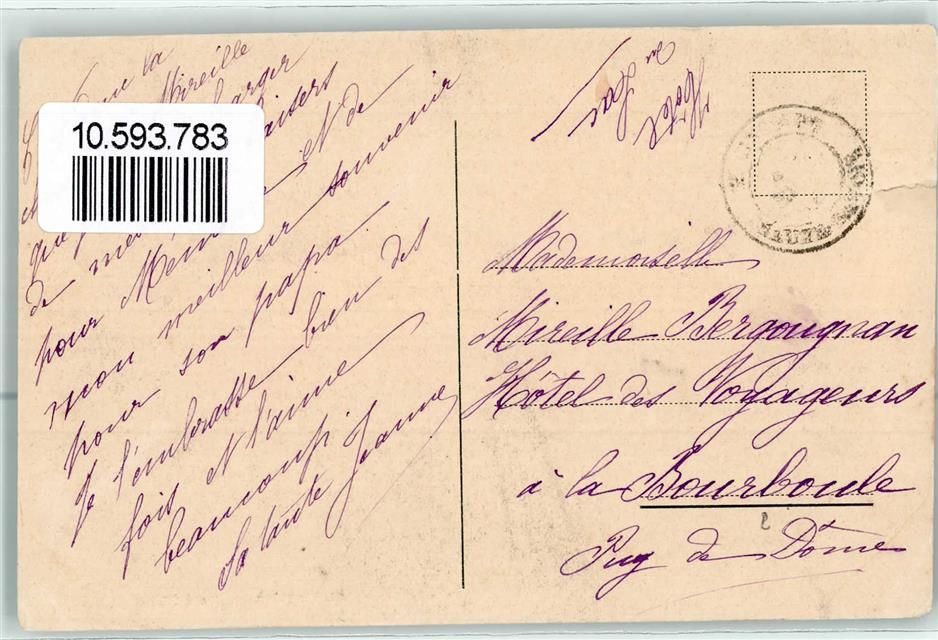 que la
Mireille
charger
baisers
que
de me et de
pour Mém
mon meilleur souvenir
pour son papa.
Je t'embrasse bien des
fois et t'aime
beaucoup.
Ta tante Jeanne
10.593.783
Mademoiselle
Mireille Bergougnan
Hôtel des Voyageurs
à la Bourboule
Puy de Dôme